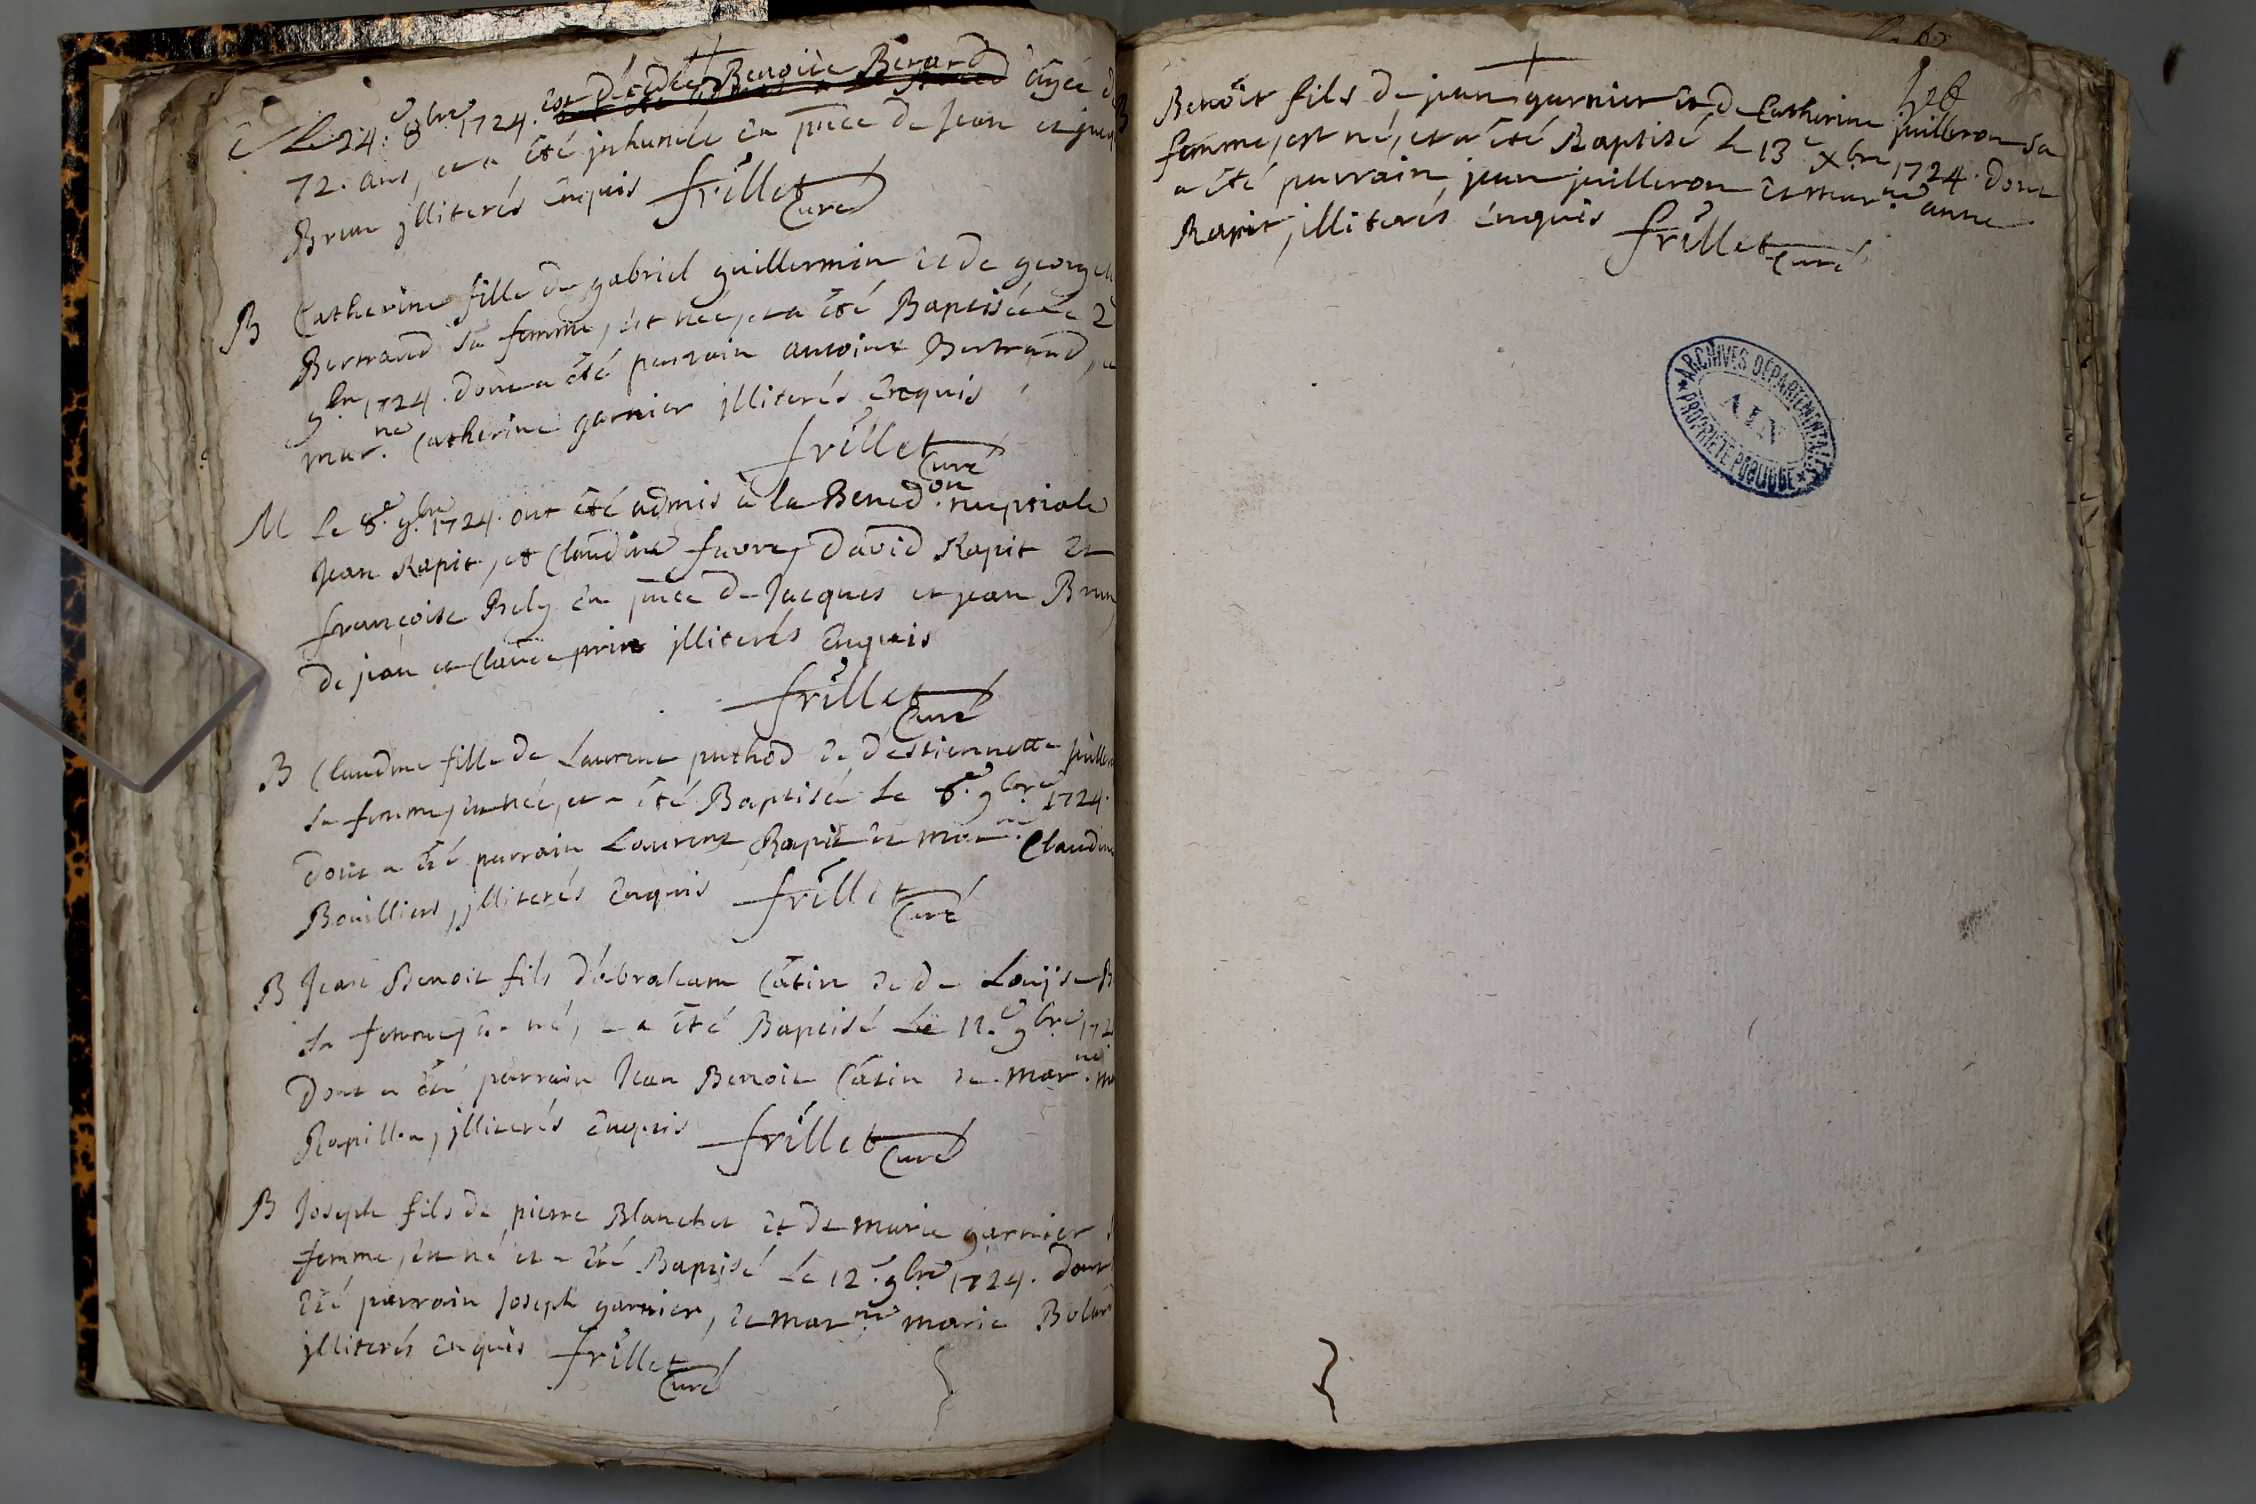 Le 24.e 8bre 1724. est décédée Benoite Berard âgée de
72. ans, et a été jnhumée en pñce de Jean et
Brun jlliterés enquis frillet Curé
B Catherine fille de gabriel guillermin et de george
Bertrand sa femme, est née, et a été Baptisée le 2
9bre 1724. dont a été parrain antoine Bertrand, et
mar.ne Catherine garnier jlliterés enquis
frillet Curé
M Le 8.e 9bre 1724. ont été admis à la Bened.on nuptiale
Jean Rapit, et Claudine favre, David Rapit et
françoise Rely en pñce de Jacques et jean Brun
de jean et Claude prin jlliterés enquis
frillet Curé
B Claudine fille de Laurent puthod et d'estiennette juilleron
sa femme, est née, et a été Baptisée le 8.e 9bre 1724.
dont a été parrain Laurent Rapit et mar.ne Claudine
Bouilliers, jlliterés enquis frillet Curé
B Jean Benoit fils d'ebraham Câtin et de Louise
sa femme, est né, et a été Baptisé Le 11.e 9bre 172
dont a été parrain Jean Benoit Câtin et mar.ne
Rapillon, jlliterés enquis frillet Curé
B Joseph fils de pierre Blanchet et de marie garnier
femme, est né et a été Baptisé le 12.e 9bre 1724. dont
été parrain Joseph garnier, et mar.ne marie
jlliterés enquis frillet Curé
B Benoit fils de jean garnier et de Catherine juilleron sa
femme, est né, et a été Baptisé le 13.e Xbre 1724. dont
a été parrain jean juilleron et mar.ne anne
Rapit, jlliterés enquis frillet Curé
ARCHIVES DÉPARTEMENTALES
AIN
PROPRIÉTÉ PUBLIQUE